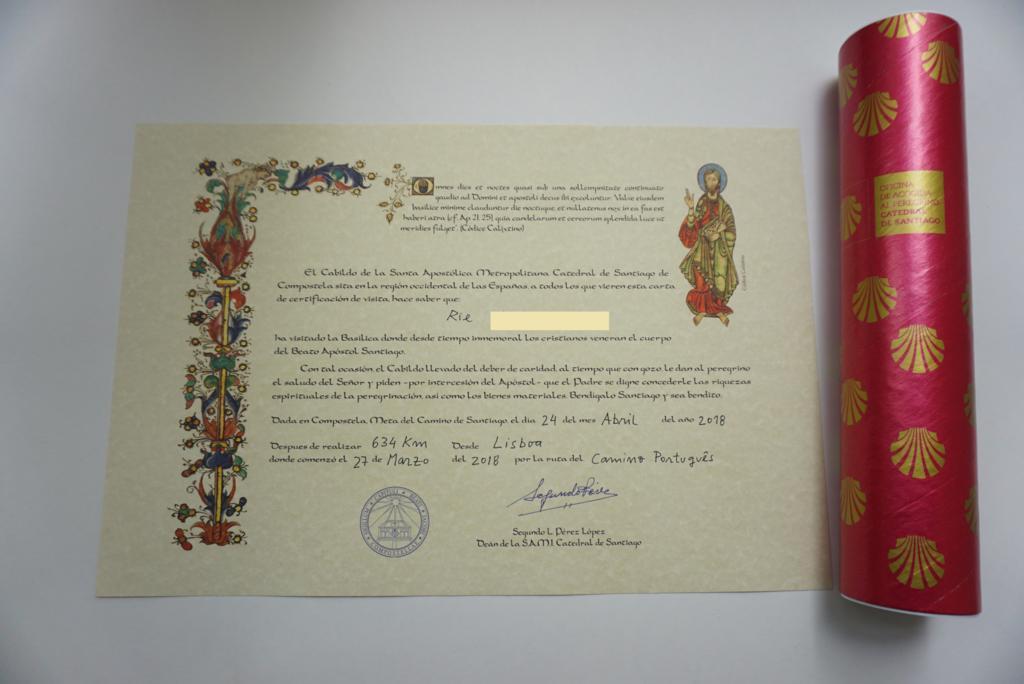 Omnes dies et noctes quasi sub una sollempnitate continuato
gaudio ad Domini et apostoli decus ibi excoluntur. Valve eiusdem
basilice minime clauduntur die noctuque, et nullatenus nox in ea fas est
haberi atra [cf. Ap. 21, 25], quia candelarum et cereorum splendida luce ut
meridies fulget". (Códice Calixtino)
El Cabildo de la Santa Apostólica Metropolitana Catedral de Santiago de
Compostela sita en la región occidental de las Españas, a todos los que vieren esta carta
de certificación de visita, hace saber que:
Rie
ha visitado la Basílica donde desde tiempo inmemorial los cristianos veneran el cuerpo
del Beato Apóstol Santiago.
Con tal ocasión, el Cabildo llevado del deber de caridad, al tiempo que con gozo le dan al peregrino
el saludo del Señor y piden -por intercesión del Apóstol- que el Padre se digne concederle las riquezas
espirituales de la peregrinación, así como los bienes materiales. Bendígalo Santiago y sea bendito.
Dada en Compostela, Meta del Camino de Santiago, el día 24 del mes Abril del año 2018
Despues de realizar 634 Km Desde Lisboa
donde comenzó el 27 de Marzo del 2018 por la ruta del Camino Portugués
Segundo L. Pérez López
Deán de la S.A.M.I. Catedral de Santiago
OFICINA
DE ACOGIDA
AL PEREGRINO
CATEDRAL
DE SANTIAGO